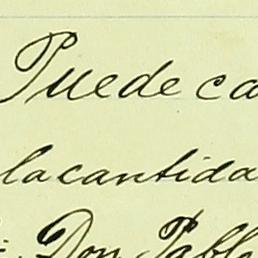 Puede ca
la cantida
Don Pabl